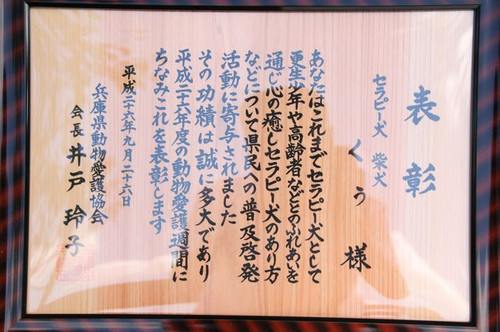 表彰
セラピー犬 柴犬
くぅ 様
あなたはこれまでセラピー犬として
更生少年や高齢者などとのふれあいを
通じ心の癒しセラピー犬のあり方
などについて県民への普及啓発
活動に寄与されました
その功績は誠に多大であり
平成二十六年度の動物愛護週間に
ちなみこれを表彰します
平成二十六年九月二十六日
兵庫県動物愛護協会
会長 井戸 玲子